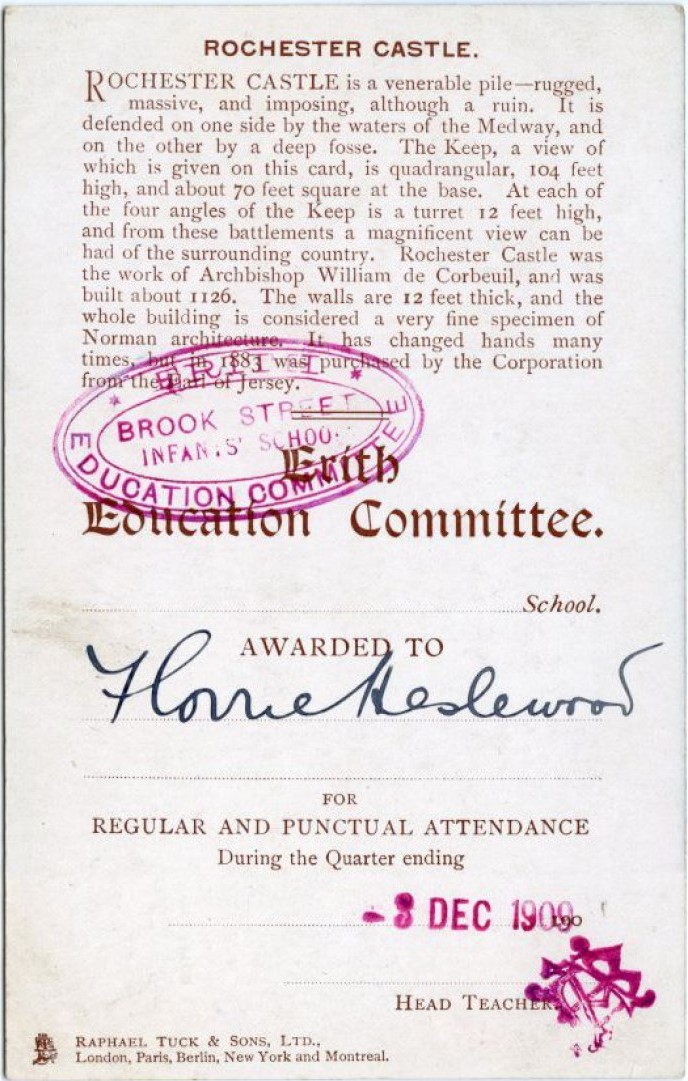 ROCHESTER CASTLE.
ROCHESTER CASTLE is a venerable pile—rugged,
massive, and imposing, although a ruin. It is
defended on one side by the waters of the Medway, and
on the other by a deep fosse. The Keep, a view of
which is given on this card, is quadrangular, 104 feet
high, and about 70 feet square at the base. At each of
the four angles of the Keep is a turret 12 feet high,
and from these battlements a magnificent view can be
had of the surrounding country. Rochester Castle was
the work of Archbishop William de Corbeuil, and was
built about 1126. The walls are 12 feet thick, and the
whole building is considered a very fine specimen of
Norman architecture. It has changed hands many
times, but in 1883 was purchased by the Corporation
from the Earl of Jersey.
* ERITH *
BROOK STREET
INFANTS' SCHOOL
EDUCATION COMMITTEE
Erith
Education Committee.
School.
AWARDED TO
Florrie Heslewood
FOR
REGULAR AND PUNCTUAL ATTENDANCE
During the Quarter ending
-3 DEC 1909 190
HEAD TEACHER.
RAPHAEL TUCK & SONS, LTD.,
London, Paris, Berlin, New York and Montreal.